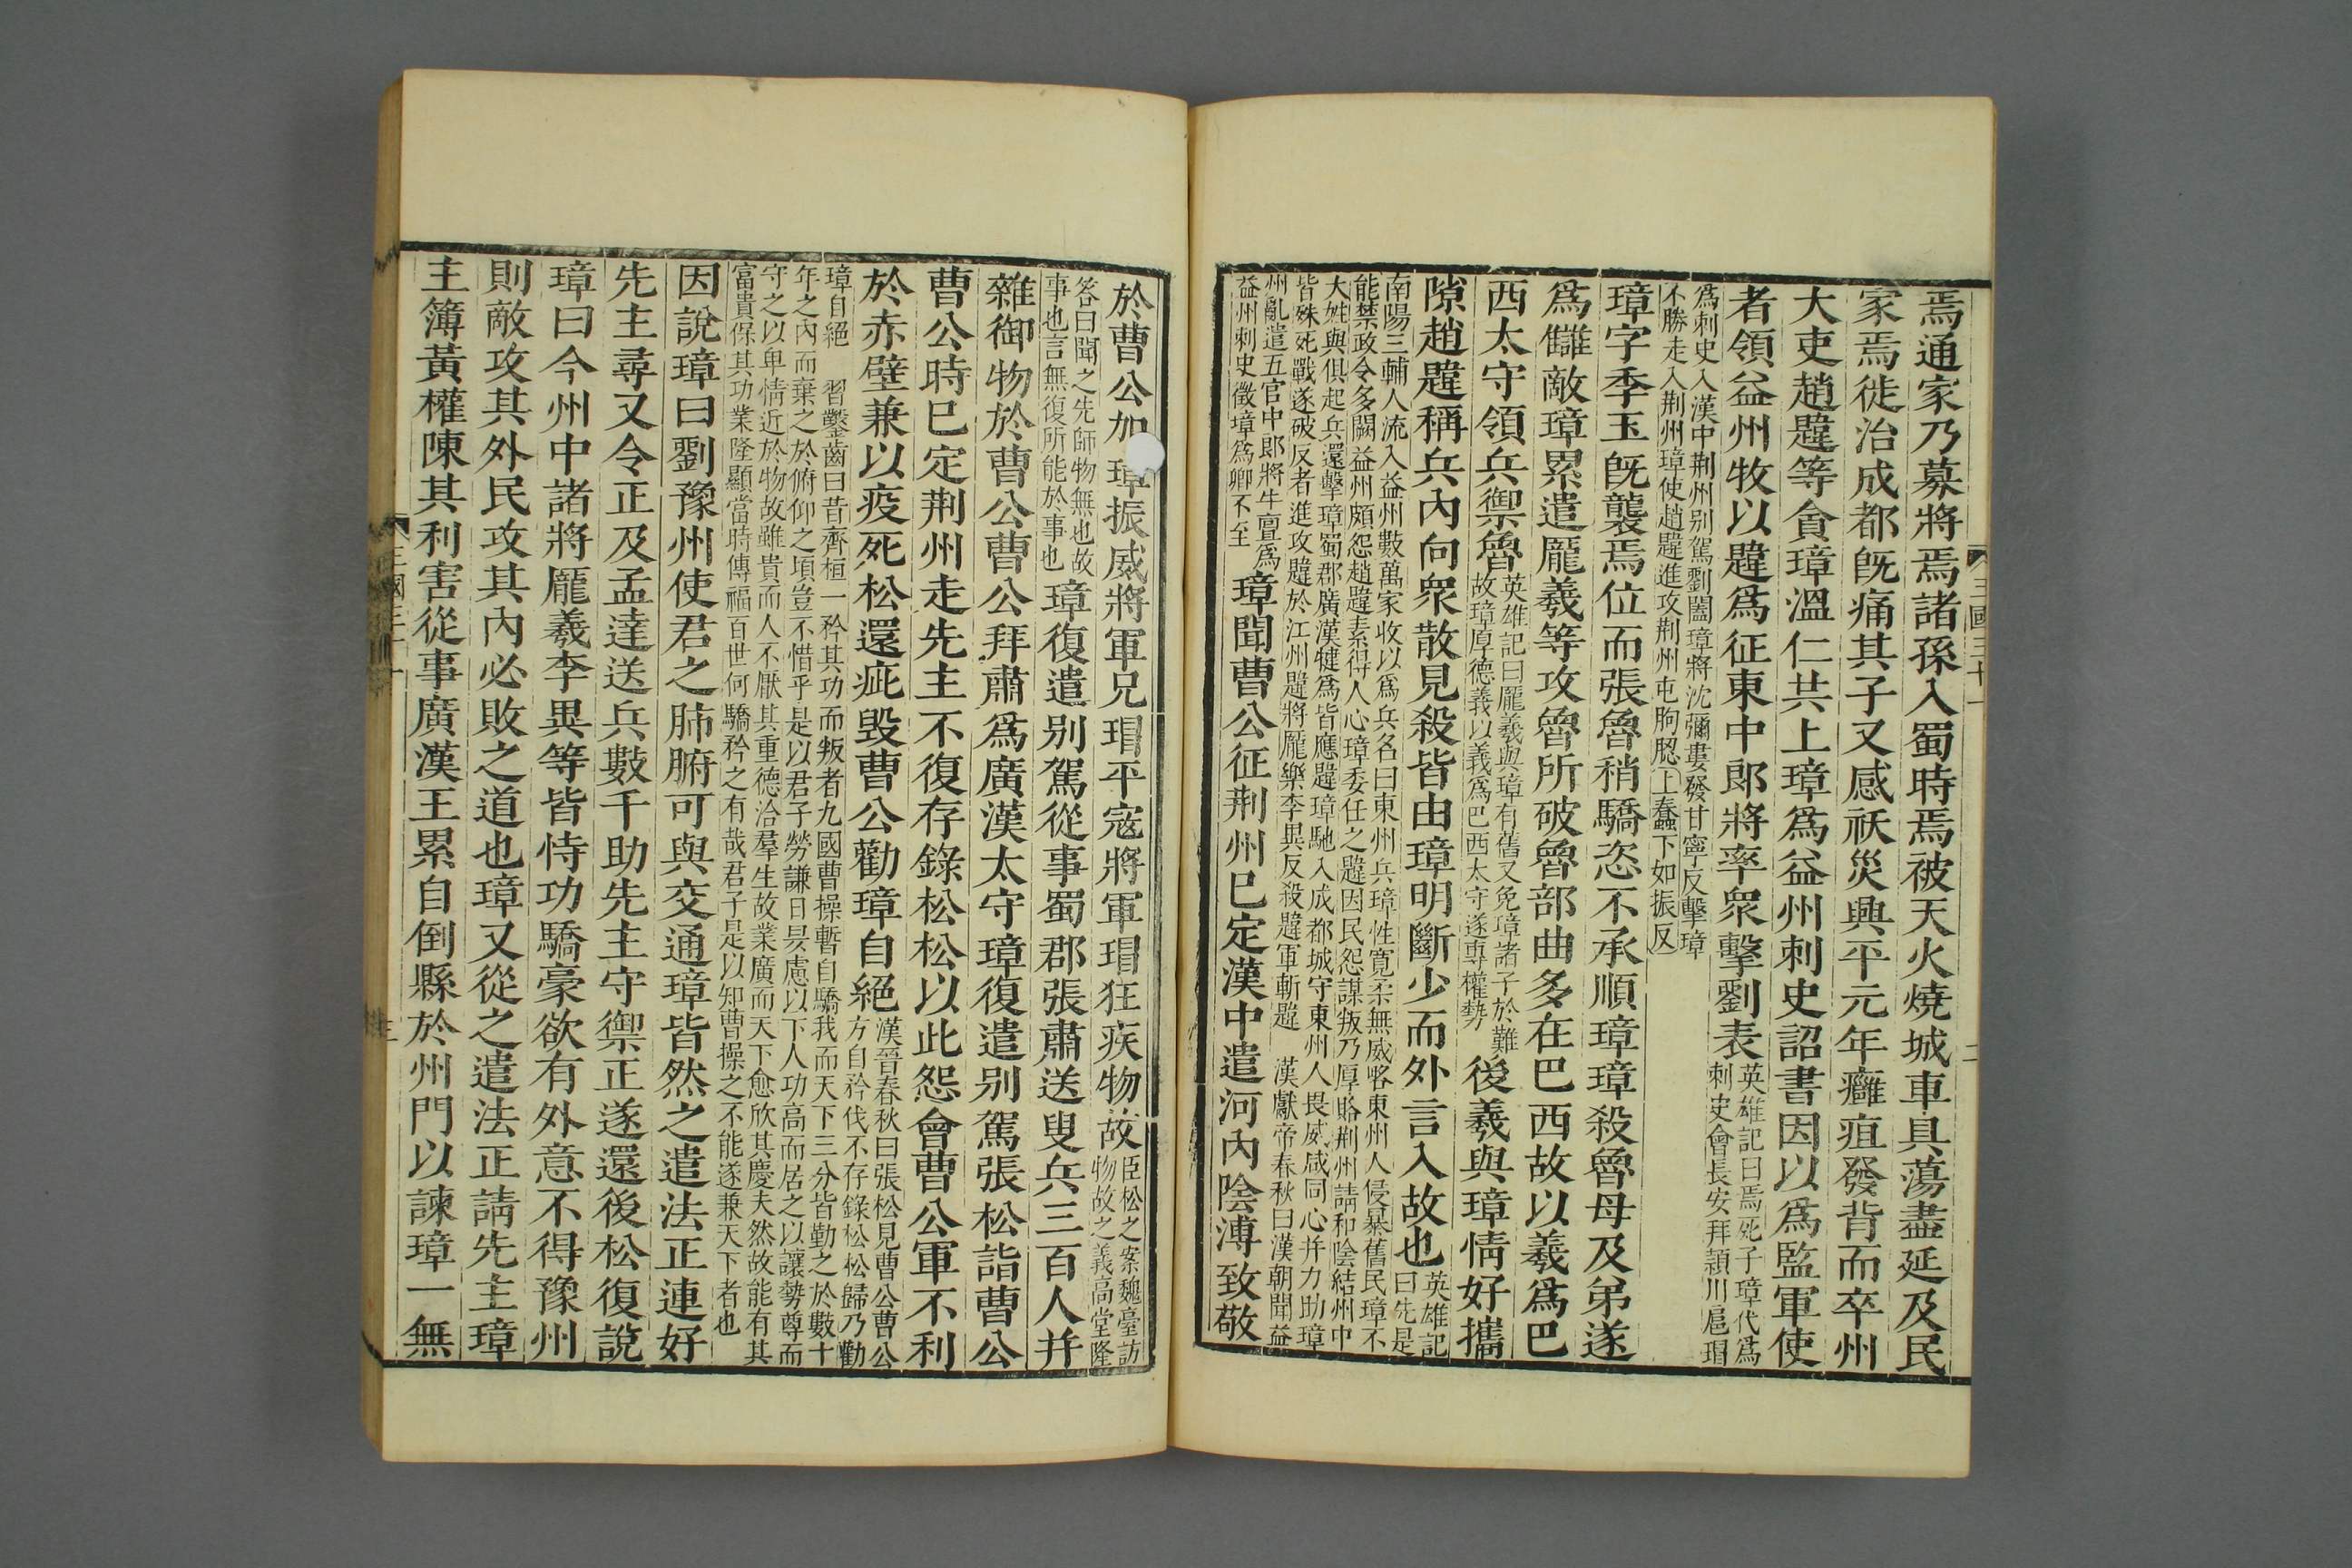 焉通家乃募將焉諸孫入蜀時焉被天火燒城車具蕩盡延及民
家焉徙治成都既痛其子又感祅災興平元年癰疽發背而卒州
大吏趙韙等貪璋溫仁共上璋爲益州刺史詔書因以爲監軍使
者領益州牧以韙爲征東中郎將率衆擊劉表英雄記曰焉死子璋代爲
刺史會長安拜潁川扈瑁
爲刺史入漢中荆州别駕劉闔璋將沈彌婁發甘寧反擊璋
不勝走入荆州璋使趙韙進攻荆州屯朐䏰上蠢下如振反
璋字季玉既襲焉位而張魯稍驕恣不承順璋璋殺魯母及弟遂
爲讎敵璋累遣龐羲等攻魯所破魯部曲多在巴西故以羲爲巴
西太守領兵禦魯英雄記曰龐羲與璋有舊又免璋諸子於難
故璋厚德義以義爲巴西太守遂專權勢後羲與璋情好攜
隙趙韙稱兵內向衆散見殺皆由璋明斷少而外言入故也英雄記
曰先是
南陽三輔人流入益州數萬家收以爲兵名曰東州兵璋性寬柔無威略東州人侵暴舊民璋不
能禁政令多闕益州頗怨趙韙素得人心璋委任之韙因民怨謀叛乃厚賂荆州請和陰結州中
大姓與俱起兵還擊璋蜀郡廣漢犍爲皆應韙璋馳入成都城守東州人畏威咸同心幷力助璋
皆殊死戰遂破反者進攻韙於江州韙將龐樂李異反殺韙軍斬韙 漢獻帝春秋曰漢朝聞益
州亂遣五官中郎將牛亶爲
益州刺史徵璋爲卿不至璋聞曹公征荆州已定漢中遣河內陰溥致敬
三國三十一
二
於曹公加璋振威將軍兄瑁平寇將軍瑁狂疾物故臣松之案魏臺訪
物故之義高堂隆
答曰聞之先師物無也故
事也言無復所能於事也璋復遣别駕從事蜀郡張肅送叟兵三百人幷
雜御物於曹公曹公拜肅爲廣漢太守璋復遣别駕張松詣曹公
曹公時已定荆州走先主不復存錄松松以此怨會曹公軍不利
於赤壁兼以疫死松還疵毀曹公勸璋自絕漢晉春秋曰張松見曹公曹公
方自矜伐不存錄松松歸乃勸
璋自絕 習鑿齒曰昔齊桓一矜其功而叛者九國曹操暫自驕我而天下三分皆勤之於數十
年之內而棄之於俯仰之頃豈不惜乎是以君子勞謙日昃慮以下人功高而居之以讓勢尊而
守之以卑情近於物故雖貴而人不厭其重德洽羣生故業廣而天下愈欣其慶夫然故能有其
富貴保其功業隆顯當時傳福百世何驕矜之有哉君子是以知曹操之不能遂兼天下者也
因說璋曰劉豫州使君之肺腑可與交通璋皆然之遣法正連好
先主尋又令正及孟達送兵數千助先主守禦正遂還後松復說
璋曰今州中諸將龐羲李異等皆恃功驕豪欲有外意不得豫州
則敵攻其外民攻其內必敗之道也璋又從之遣法正請先主璋
主簿黃權陳其利害從事廣漢王累自倒縣於州門以諫璋一無
三國三十一
三